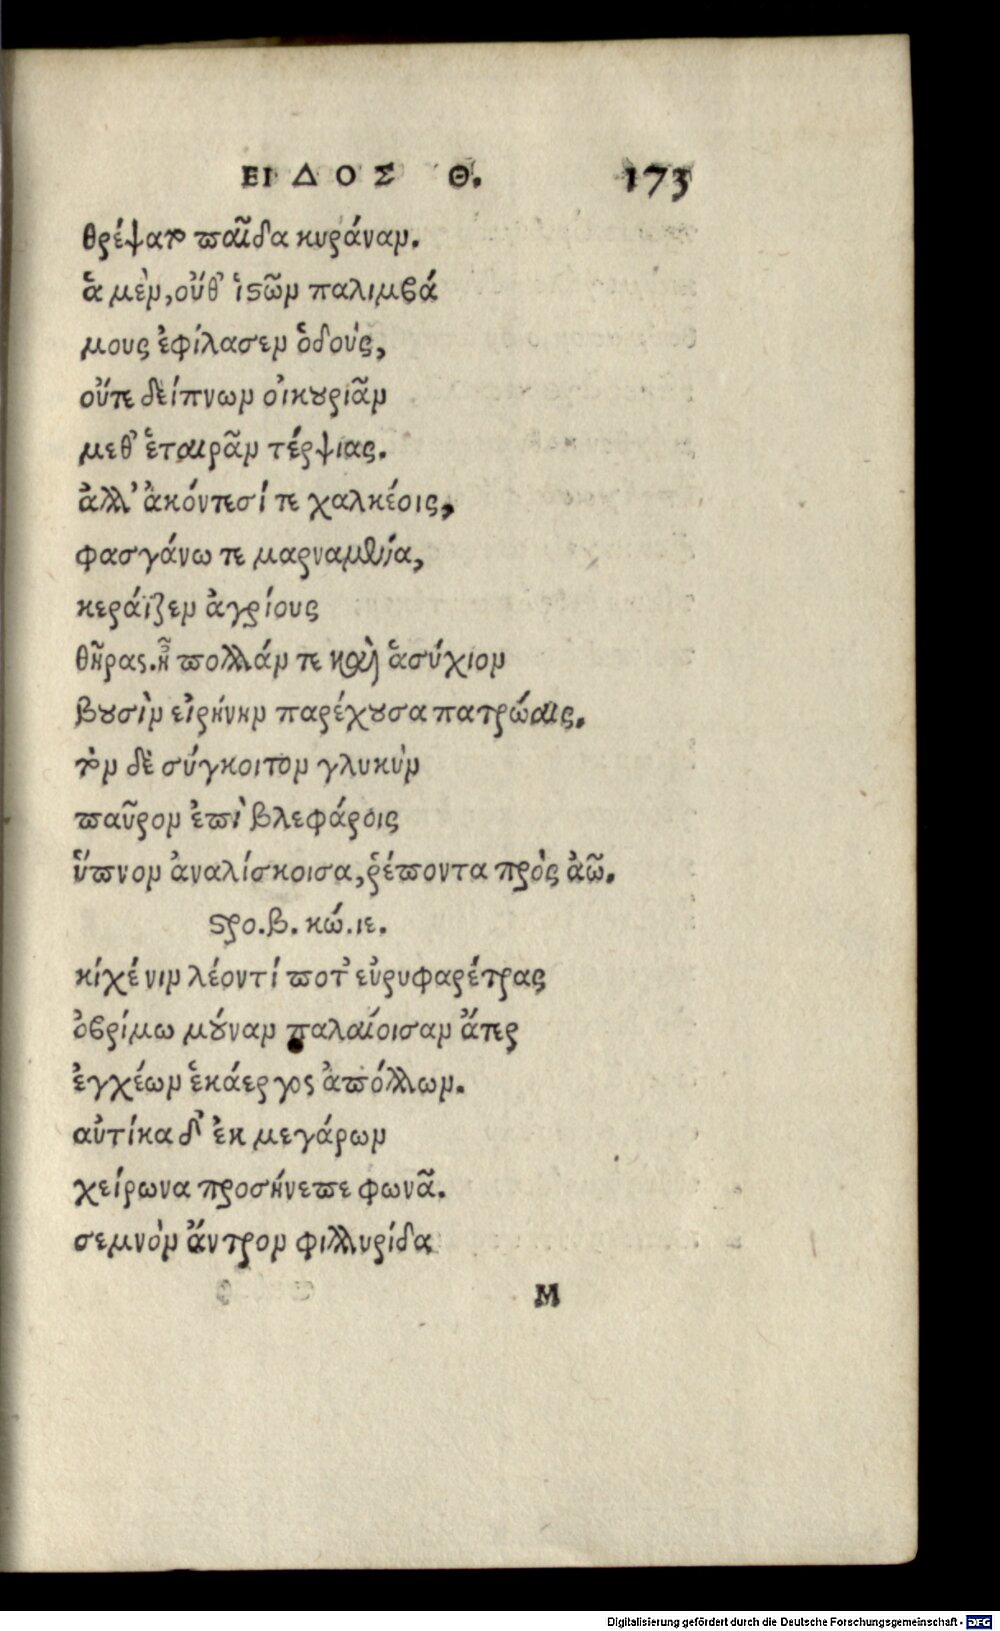 ΕΙΔΟΣ Θ. 173
θρέψατο παῖδα κυράναν.
ἁ μὲν, οὔθ' ἱστῶν παλιμβά
μους ἐφίλασεν ὁδούς,
οὔτε δείπνων οἰκουριᾶν
μεθ' ἑταιρᾶν τέρψιας.
ἀλλ' ἀκόντεσί τε χαλκέοις,
φασγάνω τε μαρναμένα,
κεράϊζεν ἀγρίους
θῆρας. ἦ πολλάν τε καὶ ἁσύχιον
βουσὶν εἰρήνην παρέχουσα πατρώαις.
τὸν δὲ σύγκοιτον γλυκὺν
παῦρον ἐπὶ βλεφάροις
ὕπνον ἀναλίσκοισα, ῥέποντα πρὸς ἀῶ.
στρο. β. κώ. ιε.
κίχέ νιν λέοντί ποτ' εὐρυφαρέτρας
ὀβρίμω μούναν παλαίοισαν ἄτερ
ἐγχέων ἑκάεργος ἀπόλλων.
αὐτίκα δ' ἐκ μεγάρων
χείρωνα προσήνεπε φωνᾶ.
σεμνὸν ἄντρον φιλλυρίδα
M
Digitalisierung gefördert durch die Deutsche Forschungsgemeinschaft - DFG